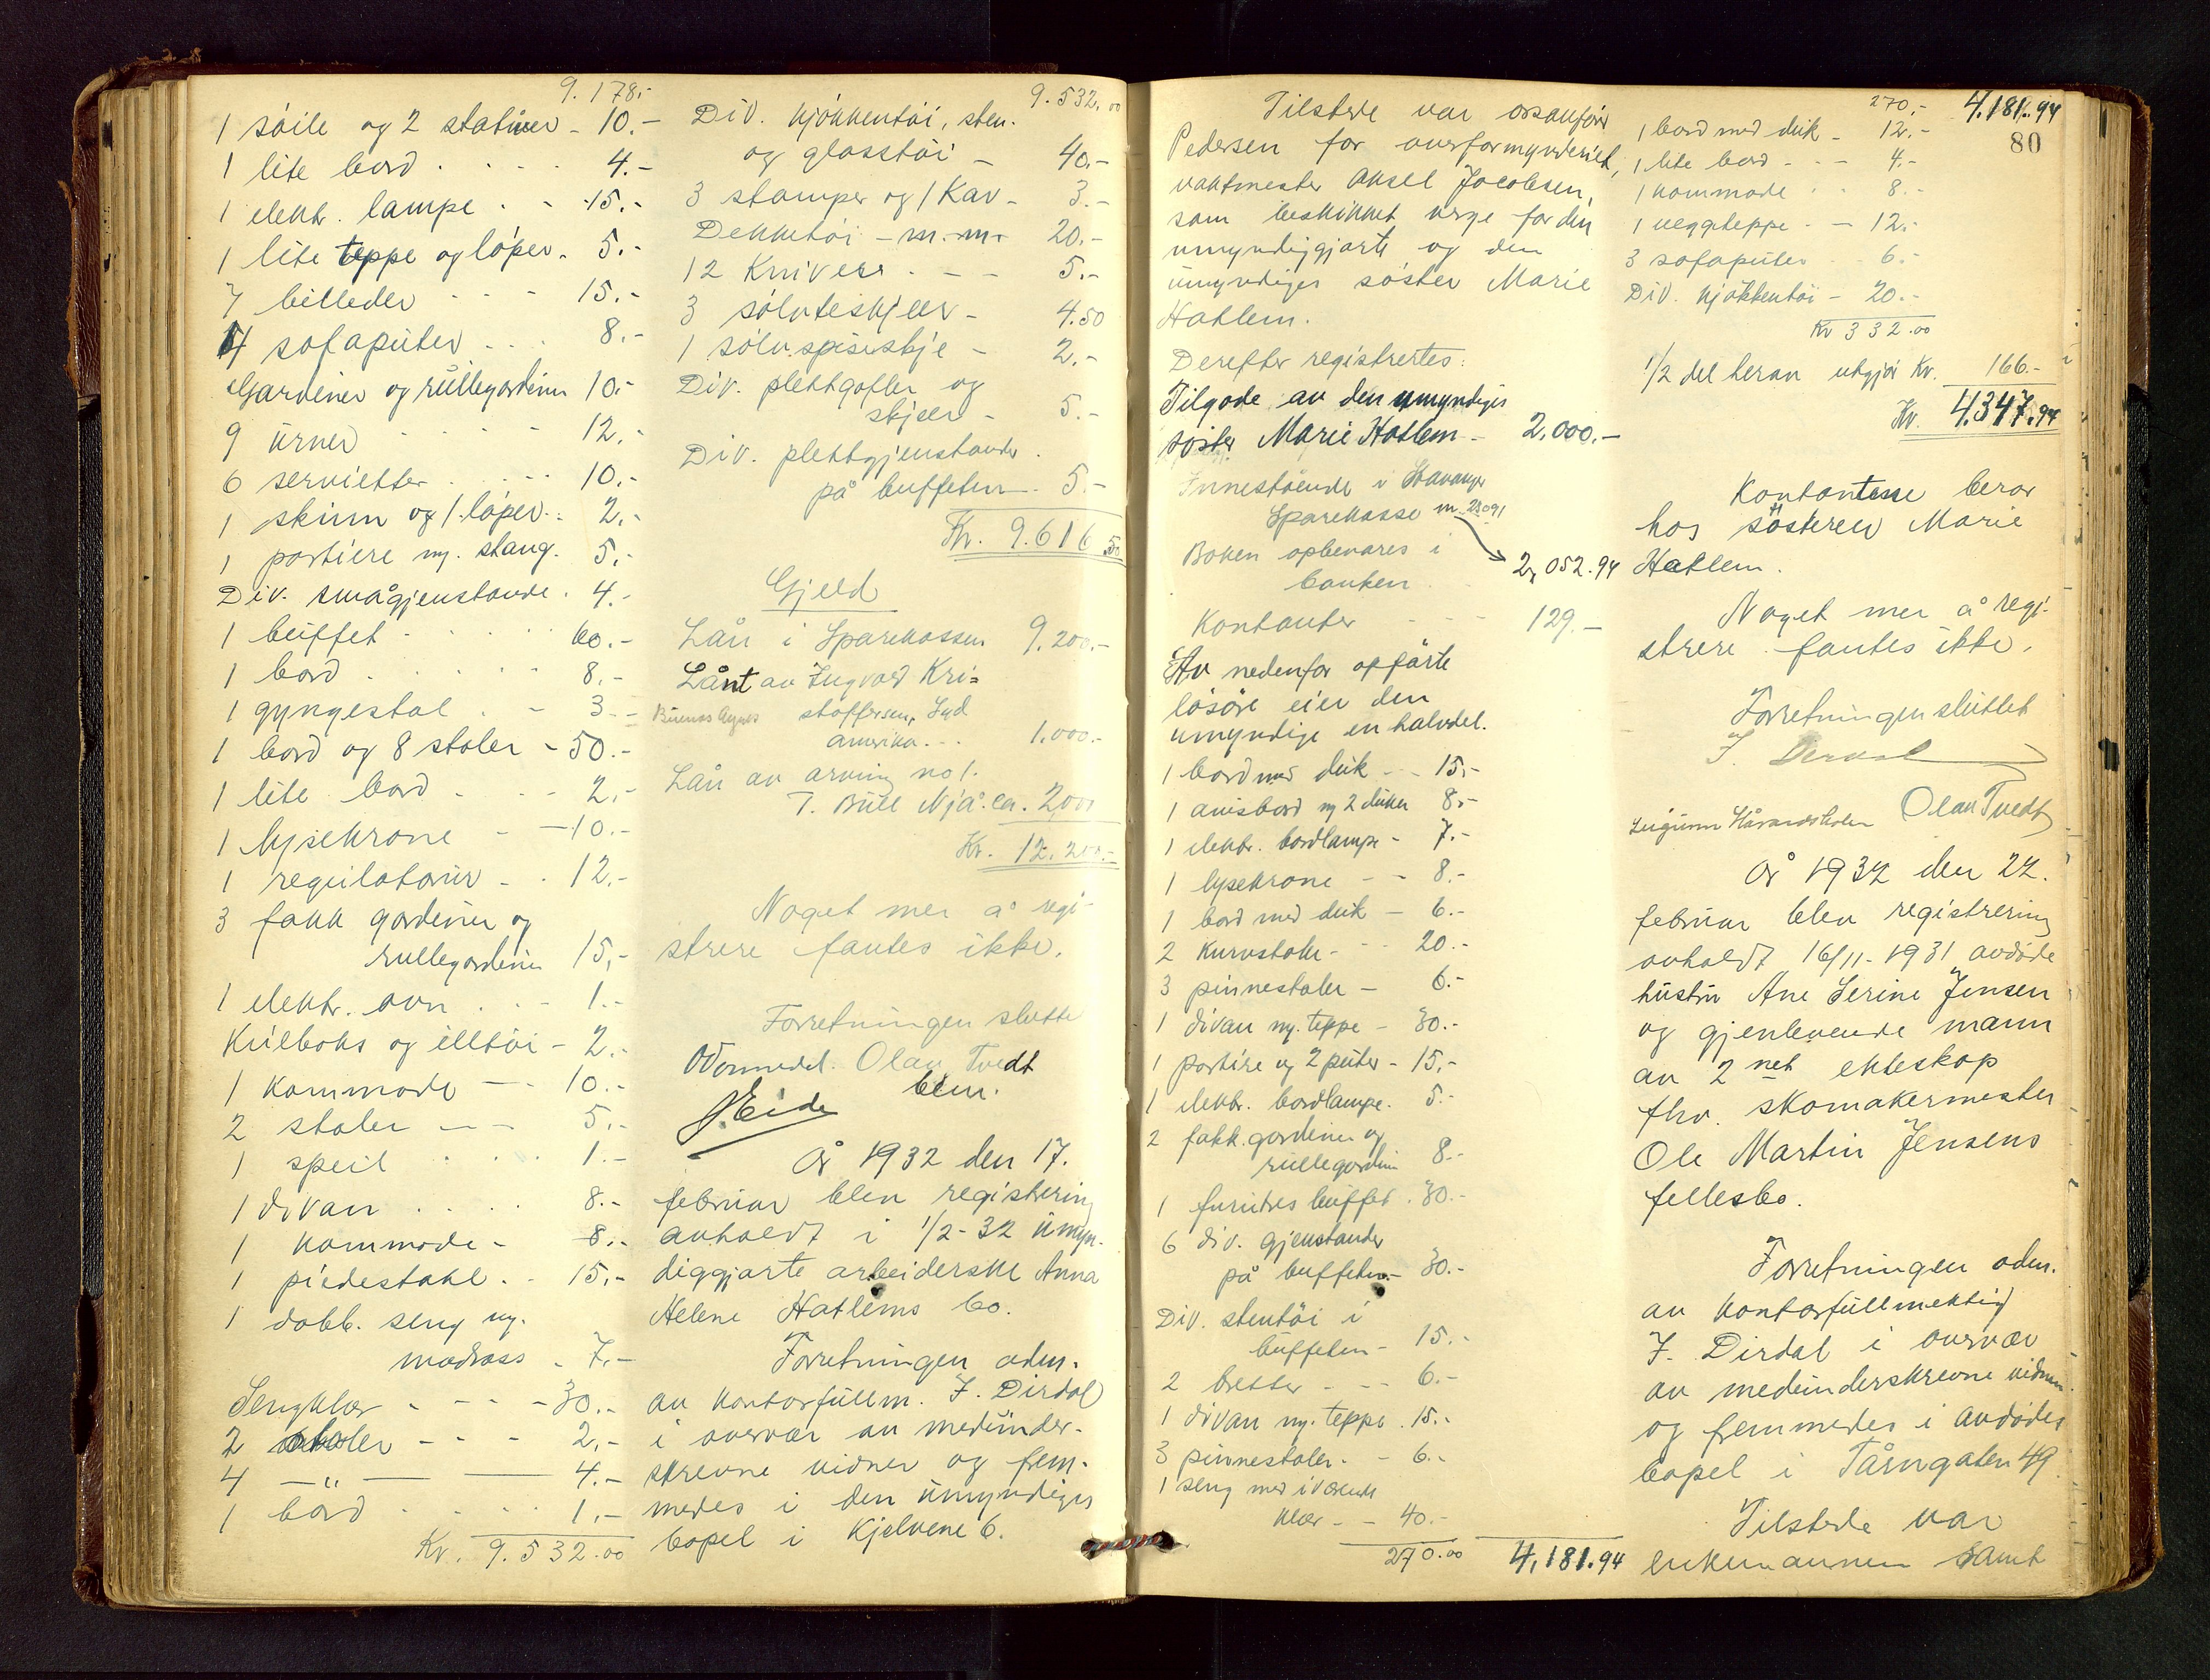 9.178.-
1 söile og 2 statuer - 10.-
1 lite bord 4.-
1 elektr. lampe 15.-
1 lite teppe og löper. 5.-
7 billeder 15.-
4 sofaputer 8.-
Gardiner og rullegardiner 10.-
9 urner 12.-
6 servietter 10.-
1 skinn og 1 löper 2.-
1 portiere m. stang. 5.-
Div. smågjenstande. 4.-
1 buffet 60.-
1 bord 8.-
1 gyngestol 3.-
1 bord og 8 stoler - 50.-
1 lite bord 2.-
1 lysekrone 10.-
1 regulatorur 12.-
3 fakk gardiner og
rullegardiner 15.-
1 elektr. ovn 1.-
Kulboks og illtöi - 2.-
1 kommode 10.-
2 stoler 5.-
1 speil 1.-
1 divan 8.-
1 kommode - 8.-
1 piedestahl. 15.-
1 dobb. seng m.
madrass - 7.-
Sengklær 30.-
2 stoler 2.-
4 — " — 4.-
1 bord 1.-
Kr. 9.532.00
9.532.00
Div. kjökkentöi, sten-
og glasstöi - 40.-
3 stamper og 1 kar - 3.-
Dekketöi - m.m. 20.-
12 kniver 5.-
3 sölvteskjeer - 4.50
1 sölvspiseskje - 2.-
Div. plettgafler og
skjeer - 5.-
Div. plettgjenstander
på buffeten 5.-
Kr. 9.616.50
Gjeld
Lån i Sparekassen 9.200.-
Lånt av Ingvald Kri=
Buenos Ayres stoffersen, Syd
amerika 1.000.-
Lån av arving no 1.
T. Bull Njå. ca. 2,000
Kr. 12.200.-
Noget mer å regi-
strere fantes ikke.
Forretningen slutte
Olav Tvedt
bem.
J Eide
År 1932 den 17.
februar blev registrering
avholdt i 1/2-32 umyn-
diggjorte arbeiderske Anna
Helene Hatlems bo.
Forretningen adm.
av kontorfullm. J. Dirdal
i overvær av medunder-
skrevne vidner og frem-
medes i den umyndiges
bopel i Kjelvene 6.
Tilstede var
Pedersen for overformynderiet,
vaktmester Aksel Jacobsen,
som beskikket verge for den
umyndiggjorte og den
umyndiges söster Marie
Hatlem.
Derefter registrertes:
Tilgode av den umyndiges
söster Marie Hatlem - 2,000.-
Innestående i Stavanger
Sparekasse nr. 23091
Boken opbevares i
banken 2,052.94
Kontanter 129.-
Av nedenfor opförte
lösöre eier den
umyndige en halvdel.
1 bord med duk 15.-
1 avisbord og 2 duker 8.-
1 elektr. bordlampe - 7.-
1 lysekrone 8.-
1 bord med duk 6.-
2 kurvstole 20.-
3 pinnestoler 6.-
1 divan m. teppe - 30.-
1 portiere og 2 puter - 15.-
1 elektr. bordlampe. 5.-
2 fakk. gardiner og
rullegardin 8.-
1 furutres buffet 30.-
6 div. gjenstander
på buffeten - 30.-
Div. stentöi i
buffeten - 15.-
2 bretter 6.-
1 divan m. teppe 15.-
3 pinnestoler 6.-
1 seng med iværende
klær 40.-
270.00 4,181.94
270.- 4.181.94
80
1 bord med duk - 12.-
1 lite bord 4.-
1 kommode 8.-
1 veggteppe 12.-
3 sofaputer 6.-
Div. kjökkentöi - 20.-
Kr 332.00
1/2 del herav utgjör Kr. 166.-
Kr. 4.347.94
Kontantene beror
hos sösteren Marie
Hatlem.
Noget mer å regi-
strere fantes ikke.
Forretningen sluttet
J. Dirdal
Olav Tvedt
År 1932 den 22.
februar blev registrering
avholdt 16/11-1931 avdöde
hustru Ane Serine Jensen
og gjenlevende mann
av 2net ekteskap
fhv. skomakermester
Ole Martin Jensens
fellesbo.
Forretningen adm.
av kontorfullmektig
J. Dirdal i overvær
av medunderskrevne vidner
og fremmedes i avdödes
bopel i Tårngaten 49.
Tilstede var
enkemannen samt